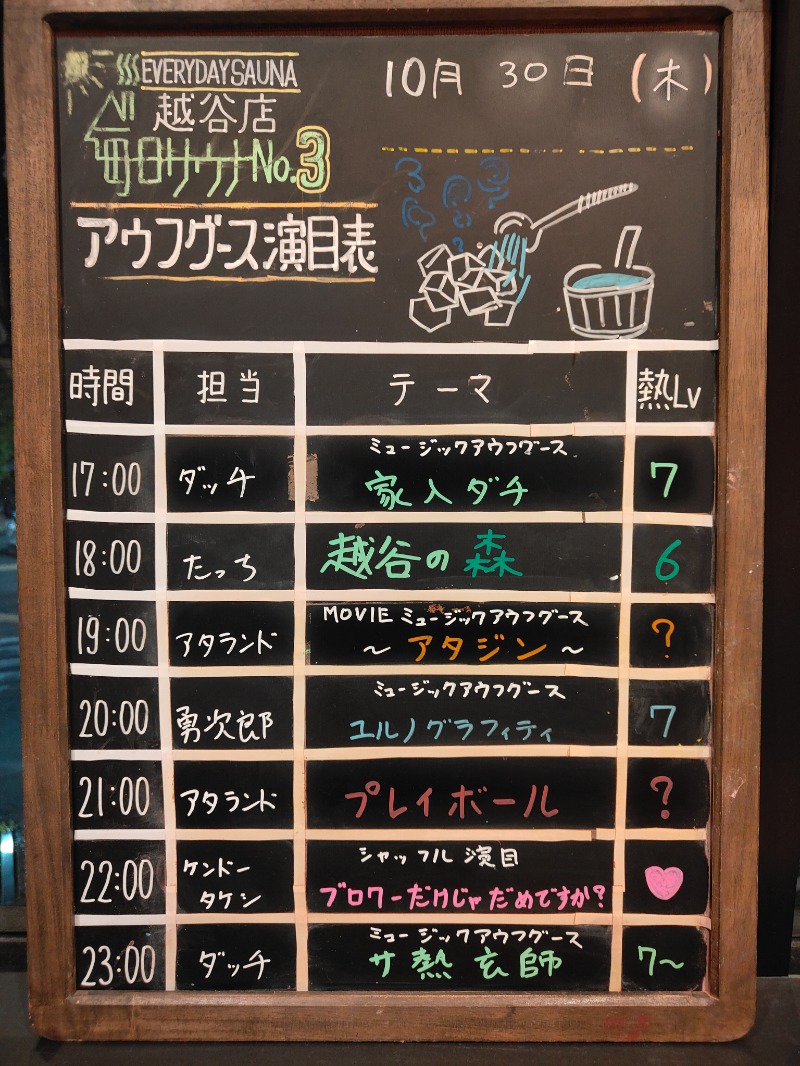 EVERYDAY SAUNA
越谷店
毎日サウナ No.3
10月 30日 (木)
アウフグース演目表
時間 担当 テーマ 熱Lv
ミュージックアウフグース
17:00 ダッチ 家入ダチ 7
18:00 たっち 越谷の森 6
MOVIE ミュージックアウフグース
19:00 アタランド ~ アタジン ~ ?
ミュージックアウフグース
20:00 勇次郎 ユルノグラフィティ 7
21:00 アタランド プレイボール ?
シャッフル 演目
22:00 ケンドー
タケシ ブロワーだけじゃだめですか?
ミュージックアウフグース
23:00 ダッチ サ熱玄師 7~